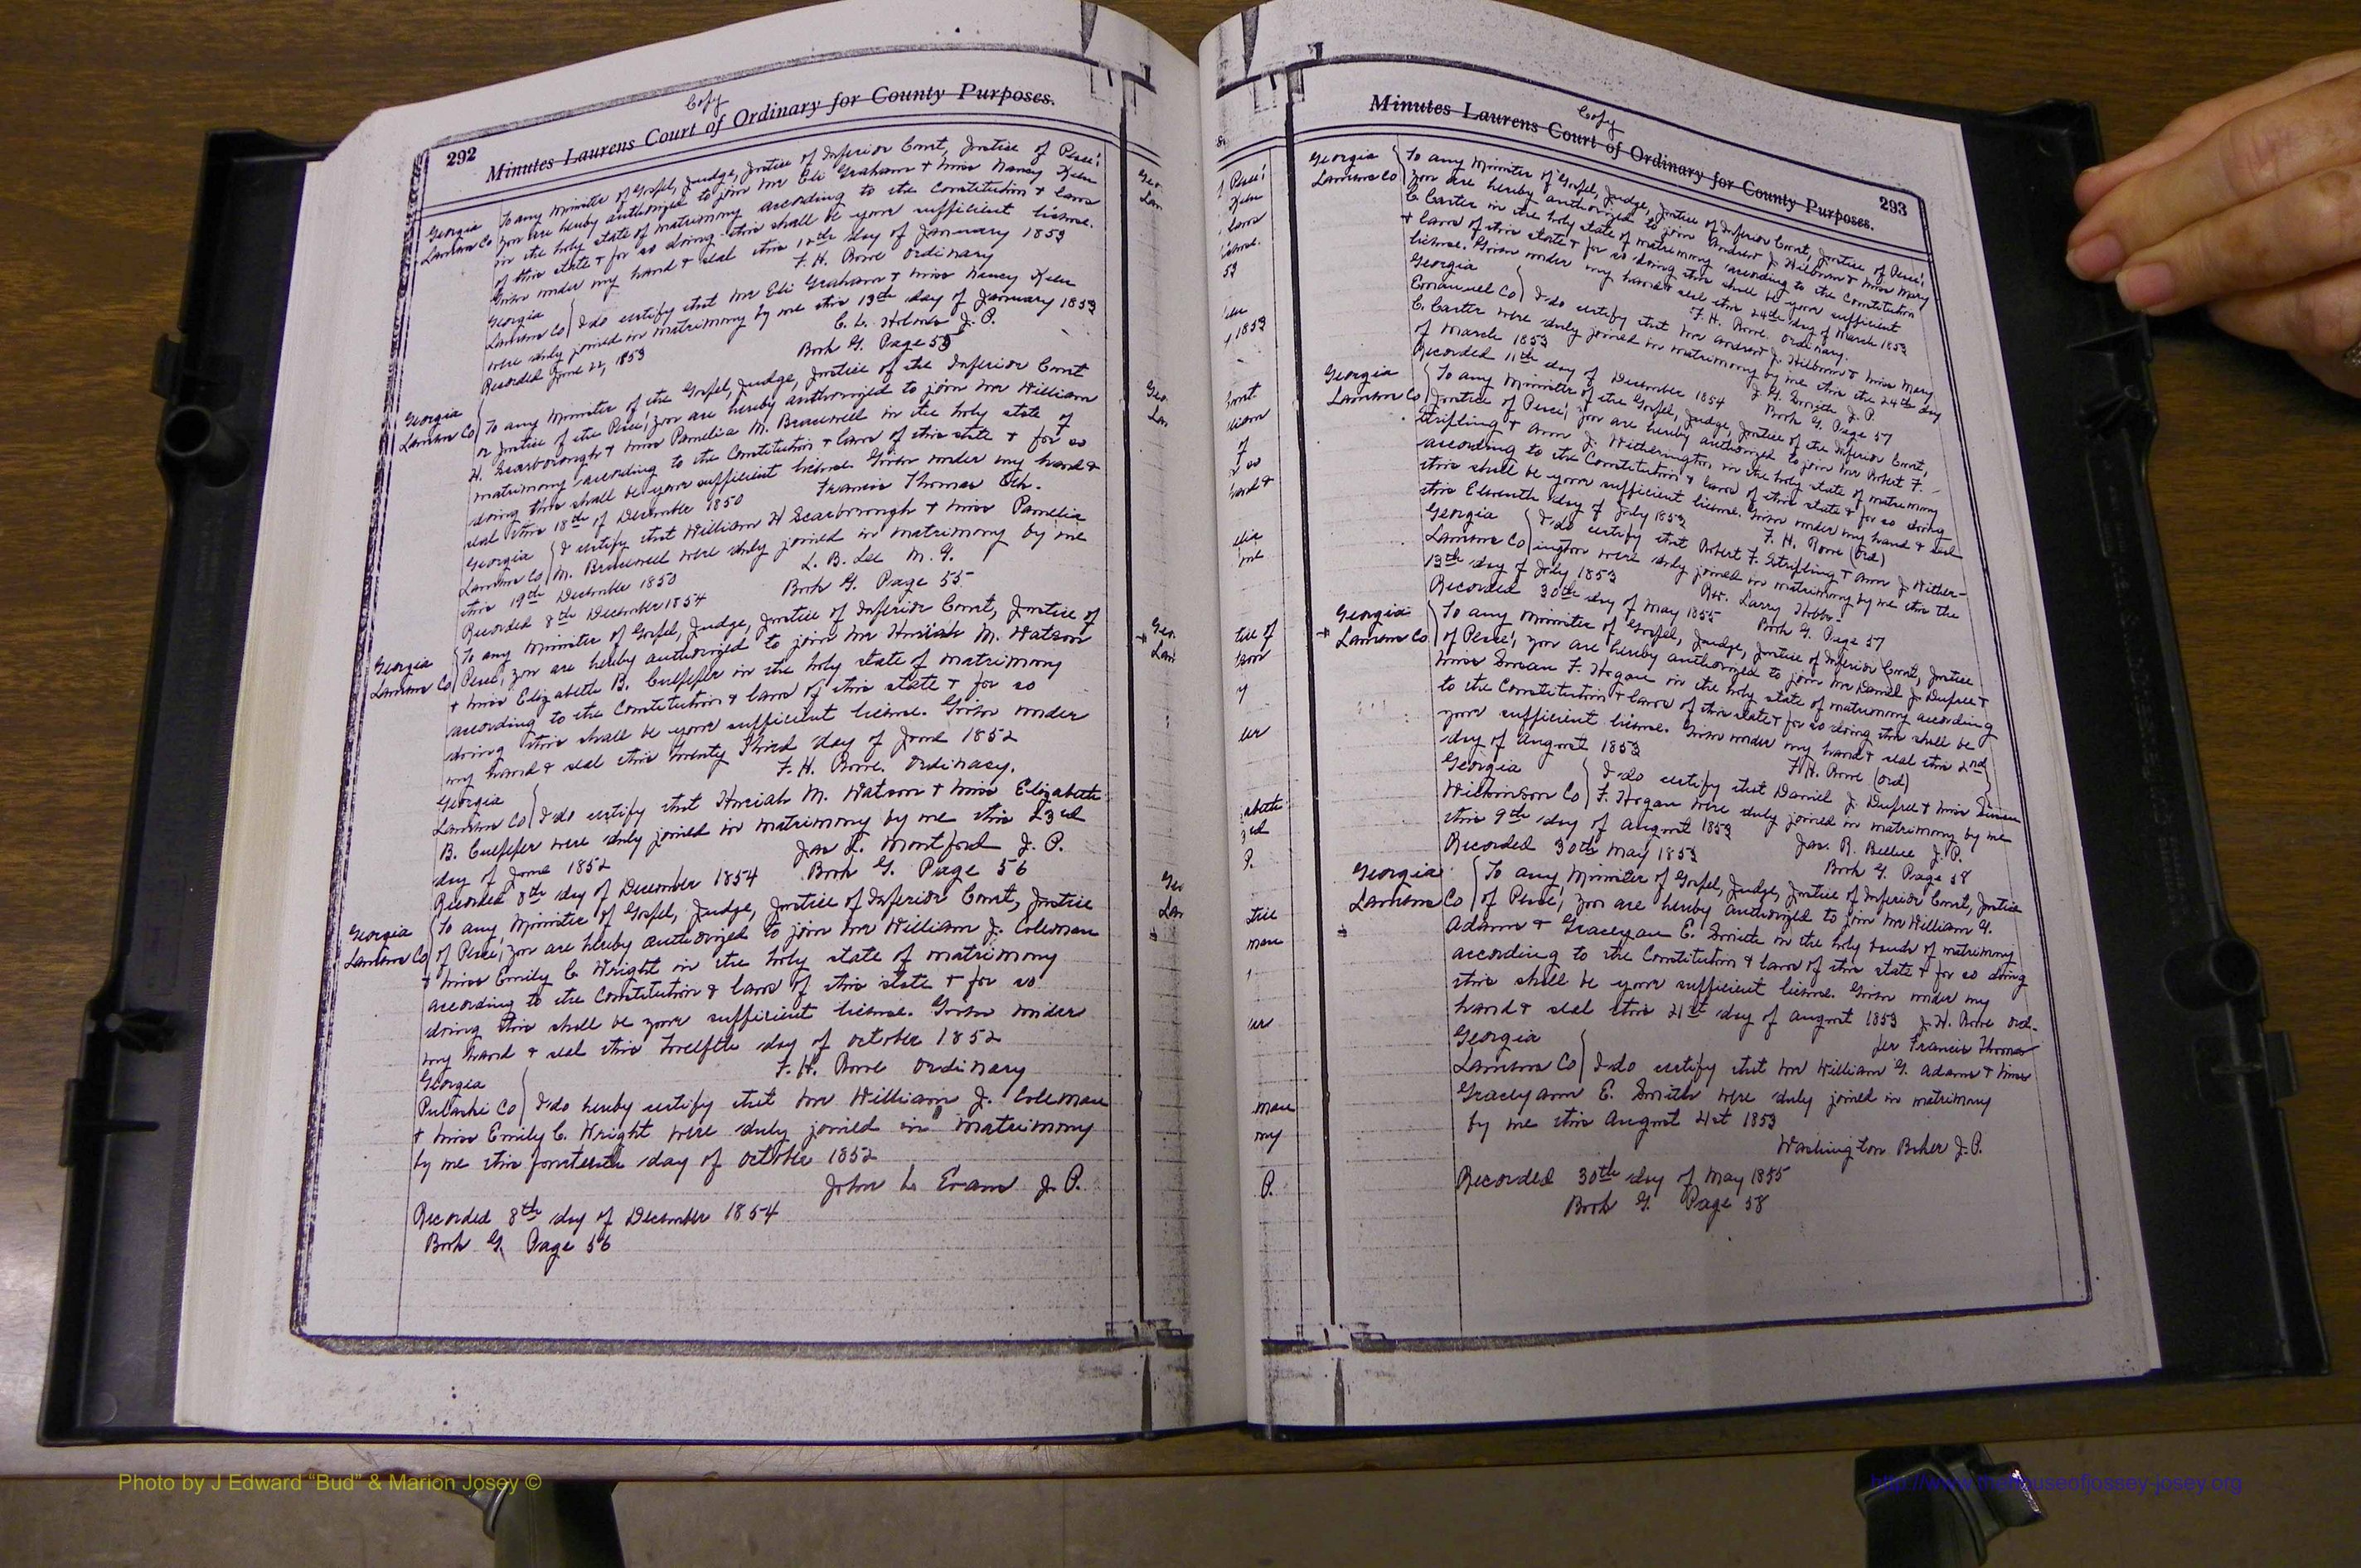 Copy
292 Minutes Laurens Court of Ordinary for County Purposes.
Georgia
Laurens Co
To any Minister of Gospel, Judge, Justice of Inferior Court, Justice of Peace;
you are hereby authorized to join Mr Eli Graham & Miss Nancy Keen
in the holy state of matrimony according to the Constitution & laws
of this state & for so doing this shall be your sufficient license.
Given under my hand & seal this 12th day of January 1853
F. H. Rowe Ordinary
Georgia
Laurens Co I do certify that Mr Eli Graham & Miss Nancy Keen
were duly joined in matrimony by me this 13th day of January 1853
C. L. Holmes J. P.
Recorded June 22, 1853
Book G. Page 55
Georgia
Laurens Co
To any Minister of the Gospel, Judge, Justice of the Inferior Court
or Justice of the Peace; you are hereby authorized to join Mr William
H. Scarborough & Miss Pamelia M. Bracewell in the holy state of
matrimony according to the Constitution & laws of this state & for so
doing this shall be your sufficient license. Given under my hand &
seal this 18th of December 1850
Francis Thomas Clk.
Georgia
Laurens Co
I certify that William H Scarborough & Miss Pamelia
M. Bracewell were duly joined in matrimony by me
this 19th December 1850
L. B. Lee M. G.
Recorded 8th December 1854
Book G. Page 55
Georgia
Laurens Co
To any Minister of Gospel, Judge, Justice of Inferior Court, Justice of
Peace; you are hereby authorized to join Mr M. Watson
& Miss Elizabeth B. Culpepper in the holy state of matrimony
according to the Constitution & laws of this state & for so
doing this shall be your sufficient license. Given under
my hand & seal this twenty third day of June 1852
F. H. Rowe. Ordinary.
Georgia
Laurens Co I do certify that M. Watson & Miss Elizabeth
B. Culpepper were duly joined in matrimony by me this 23rd
day of June 1852
Jas. Montford J. P.
Recorded 8th day of December 1854 Book G. Page 56
Georgia
Laurens Co
To any Minister of Gospel, Judge, Justice of Inferior Court, Justice
of Peace; you are hereby authorized to join Mr William J. Coleman
& Miss Emily C. Wright in the holy state of matrimony
according to the Constitution & laws of this state & for so
doing this shall be your sufficient license. Given under
my hand & seal this twelfth day of October 1852
F. H. Rowe Ordinary
Georgia
Pulaski Co I do hereby certify that Mr William J. Coleman
& Miss Emily C. Wright were duly joined in matrimony
by me this fourteenth day of October 1852
John L Evans J. P.
Recorded 8th day of December 1854
Book G. Page 56
Copy
Minutes Laurens Court of Ordinary for County Purposes. 293
Georgia
Laurens Co
To any Minister of Gospel, Judge, Justice of Inferior Court, Justice of Peace;
you are hereby authorized to join Andrew J. Hilburn & Miss Mary
C Carter in the holy state of matrimony according to the Constitution
& laws of this state & for so doing this shall be your sufficient
license. Given under my hand & seal this 24th day of March 1853
F. H. Rowe. Ordinary.
Georgia
Emanuel Co I do certify that Mr Andrew J. Hilburn & Miss Mary
C. Carter were duly joined in matrimony by me this the 24th day
of March 1853
J. G. Smith J. P.
Recorded 11th day of December 1854 Book G. Page 57
Georgia
Laurens Co
To any Minister of the Gospel, Judge, Justice of the Inferior Court,
Justice of Peace; you are hereby authorized to join Mr Robert F.
Stripling & Ann J. Witherington in the holy state of matrimony
according to the Constitution & laws of this state & for so doing
this shall be your sufficient license. Given under my hand & seal
this Eleventh day of July 1853
F. H. Rowe (Ord)
Georgia
Laurens Co
I do certify that Robert F. Stripling & Ann J Wither-
ington were duly joined in matrimony by me this the
13th day of July 1853
Rev. Larry Hobbs
Recorded 30th day of May 1855 Book G. Page 57
Georgia
Laurens Co
To any Minister of Gospel, Judge, Justice of Inferior Court, Justice
of Peace; you are hereby authorized to join Mr Daniel J. Dupree &
Miss Susan F. Hogan in the holy state of matrimony according
to the Constitution & laws of this state & for so doing this shall be
your sufficient license. Given under my hand & seal this 2nd
day of August 1853
F. H. Rowe (Ord)
Georgia
Wilkinson Co
I do certify that Daniel J. Dupree & Miss Susan
F. Hogan were duly joined in matrimony by me
this 9th day of August 1853
Jas. R. J. P.
Recorded 30th May 1855
Book G. Page 58
Georgia
Laurens Co
To any Minister of Gospel, Judge, Justice of Inferior Court, Justice
of Peace; you are hereby authorized to join Mr William G.
Adams & Graceyann E. Smith in the holy bands of matrimony
according to the Constitution & laws of this state & for so doing
this shall be your sufficient license. Given under my
hand & seal this 21st day of August 1853 F. H. Rowe Ord.
per Francis Thomas
Georgia
Laurens Co I do certify that Mr William G. Adams & Miss
Graceyann E. Smith were duly joined in matrimony
by me this August 21st 1853
Washington Baker J. P.
Recorded 30th day of May 1855
Book G. Page 58
Photo by J Edward “Bud” & Marion Josey ©
http://www.thehouseofjossey-josey.org